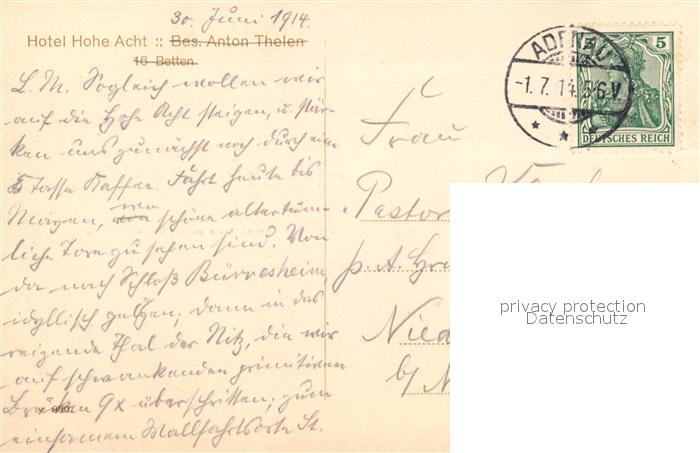 30. Juni 1914.
Hotel Hohe Acht :: Bes. Anton Thelen
16 Betten.
L. M. Sogleich wollen wir
auf die Hohe Acht steigen, u. stär-
ken uns zunächst noch durch eine
Tasse Kaffee. Fährt heute bis
Mayen, wo schöne altertüm-
liche Tore zu sehen sind. Von
da nach Schloß Bürresheim
idyllisch gelegen, dann in das
reizende Thal der Nitz, die wir
auf schwankenden primitiven
Brücken 9x überschritten; zum
einsamen Wallfahrtsorte St.
ADENAU
-1.7.14. 5-6 V.
5
DEUTSCHES REICH
Frau
Pastor
p. A.
Nied
b/N
privacy protection
Datenschutz